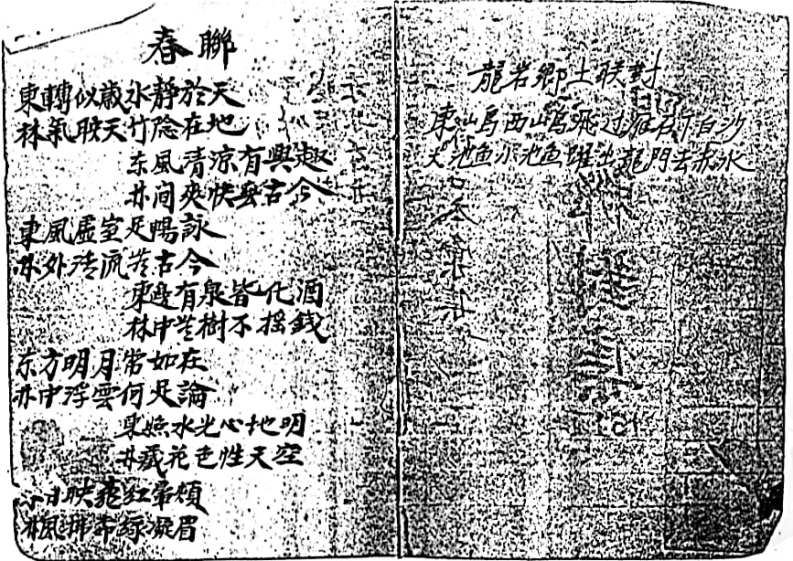 春聯
東轉似歲水靜於天
林氣映天竹陰在地
东風清涼有興趣
林间爽快無古今
東風虛室足暢詠
林外清流无古今
東邊有泉皆化酒
林中无樹不摇錢
东方明月常如在
林中浮雲何足論
東始水光心地明
林藏花色性天空
日映 红暈頰
林風 帶綠凝眉
龍岩鄉土联對
東山鳥西山鳥飛过 白沙
大池鱼小池鱼躍出龍門去赤水